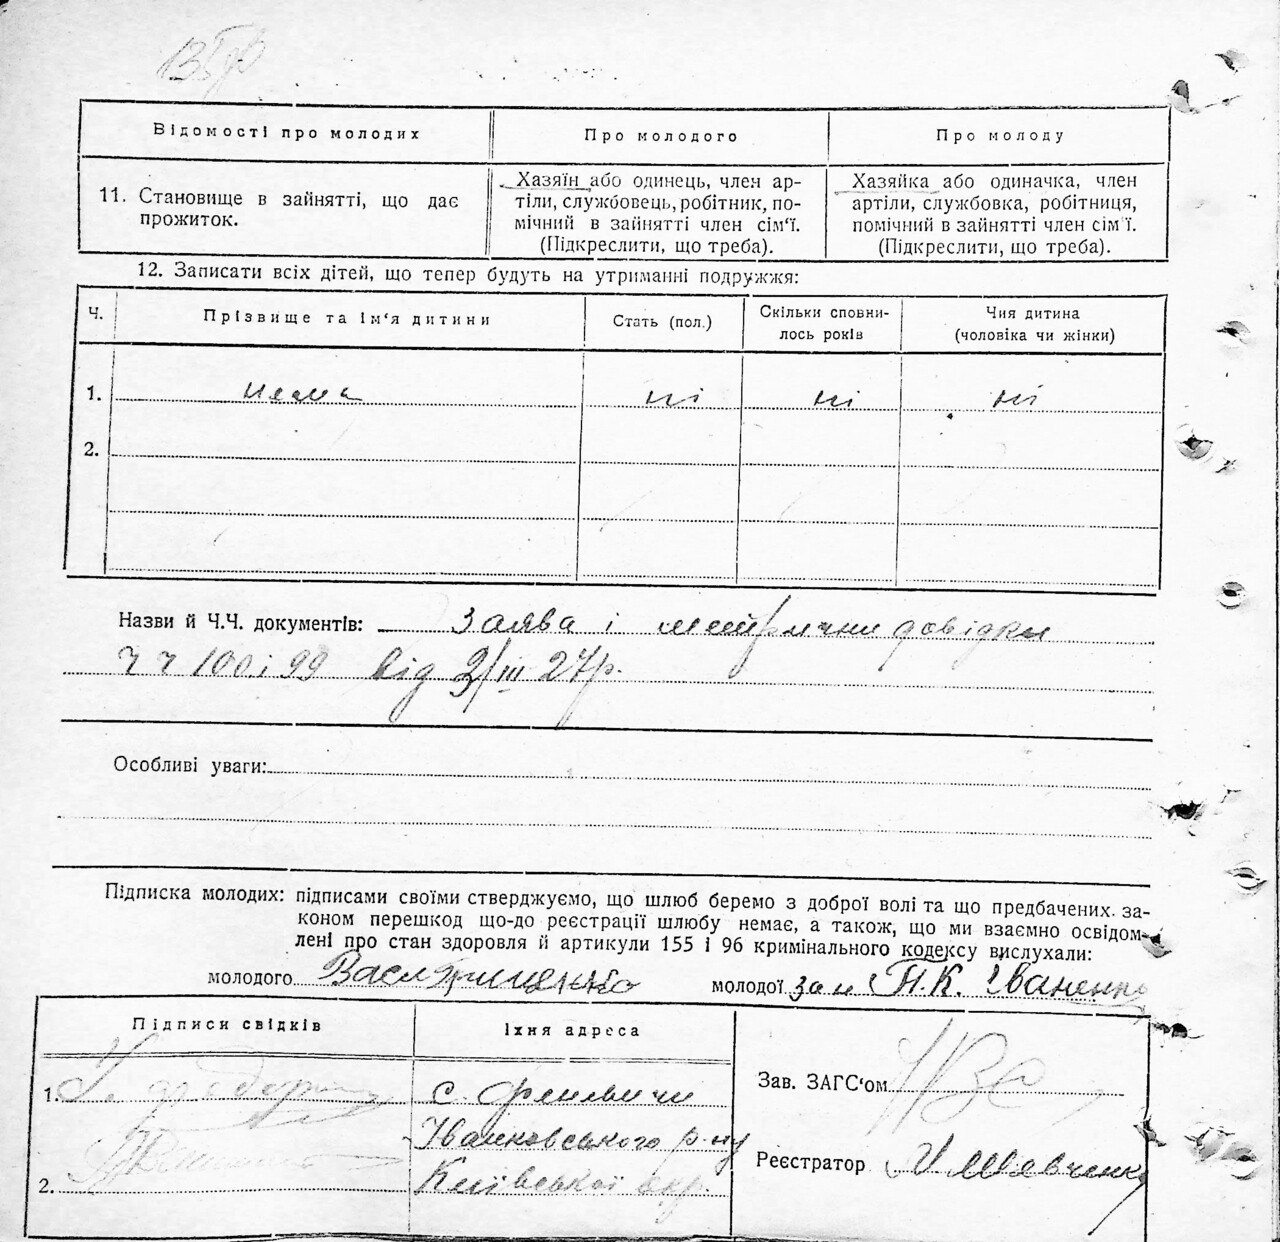 Відомості про молодих
Про молодого
Про молоду
11. Становище в зайнятті, що дає
прожиток.
Хазяїн або одинець, член ар-
тілі, службовець, робітник, по-
мічний в зайнятті член сім'ї.
(Підкреслити, що треба).
Хазяйка або одиначка, член
артіли, службовка, робітниця,
помічний в зайнятті член сім'ї.
(Підкреслити, що треба).
12. Записати всіх дітей, що тепер будуть на утриманні подружжя:
Ч.
Прізвище та ім'я дитини
Стать (пол.)
Скільки сповни-
лось років
Чия дитина
(чоловіка чи жінки)
1. нема ні ні ні
2.
Назви й Ч.Ч. документів: Заява і метричні довідки
ч ч 100 і 99 від 2/III 27р.
Особливі уваги:
Підписка молодих: підписами своїми стверджуємо, що шлюб беремо з доброї волі та що предбачених за-
коном перешкод що-до реєстрації шлюбу немає, а також, що ми взаємно освідом-
лені про стан здоровля й артикули 155 і 96 кримінального кодексу вислухали:
молодого Васил Гриценко молодої за н П.К. Іваненко
Підписи свідків
Їхня адреса
1.
с.
Іванковського р-ну
2.
Київської окр.
Зав. ЗАГС'ом
Реєстратор Шевченко